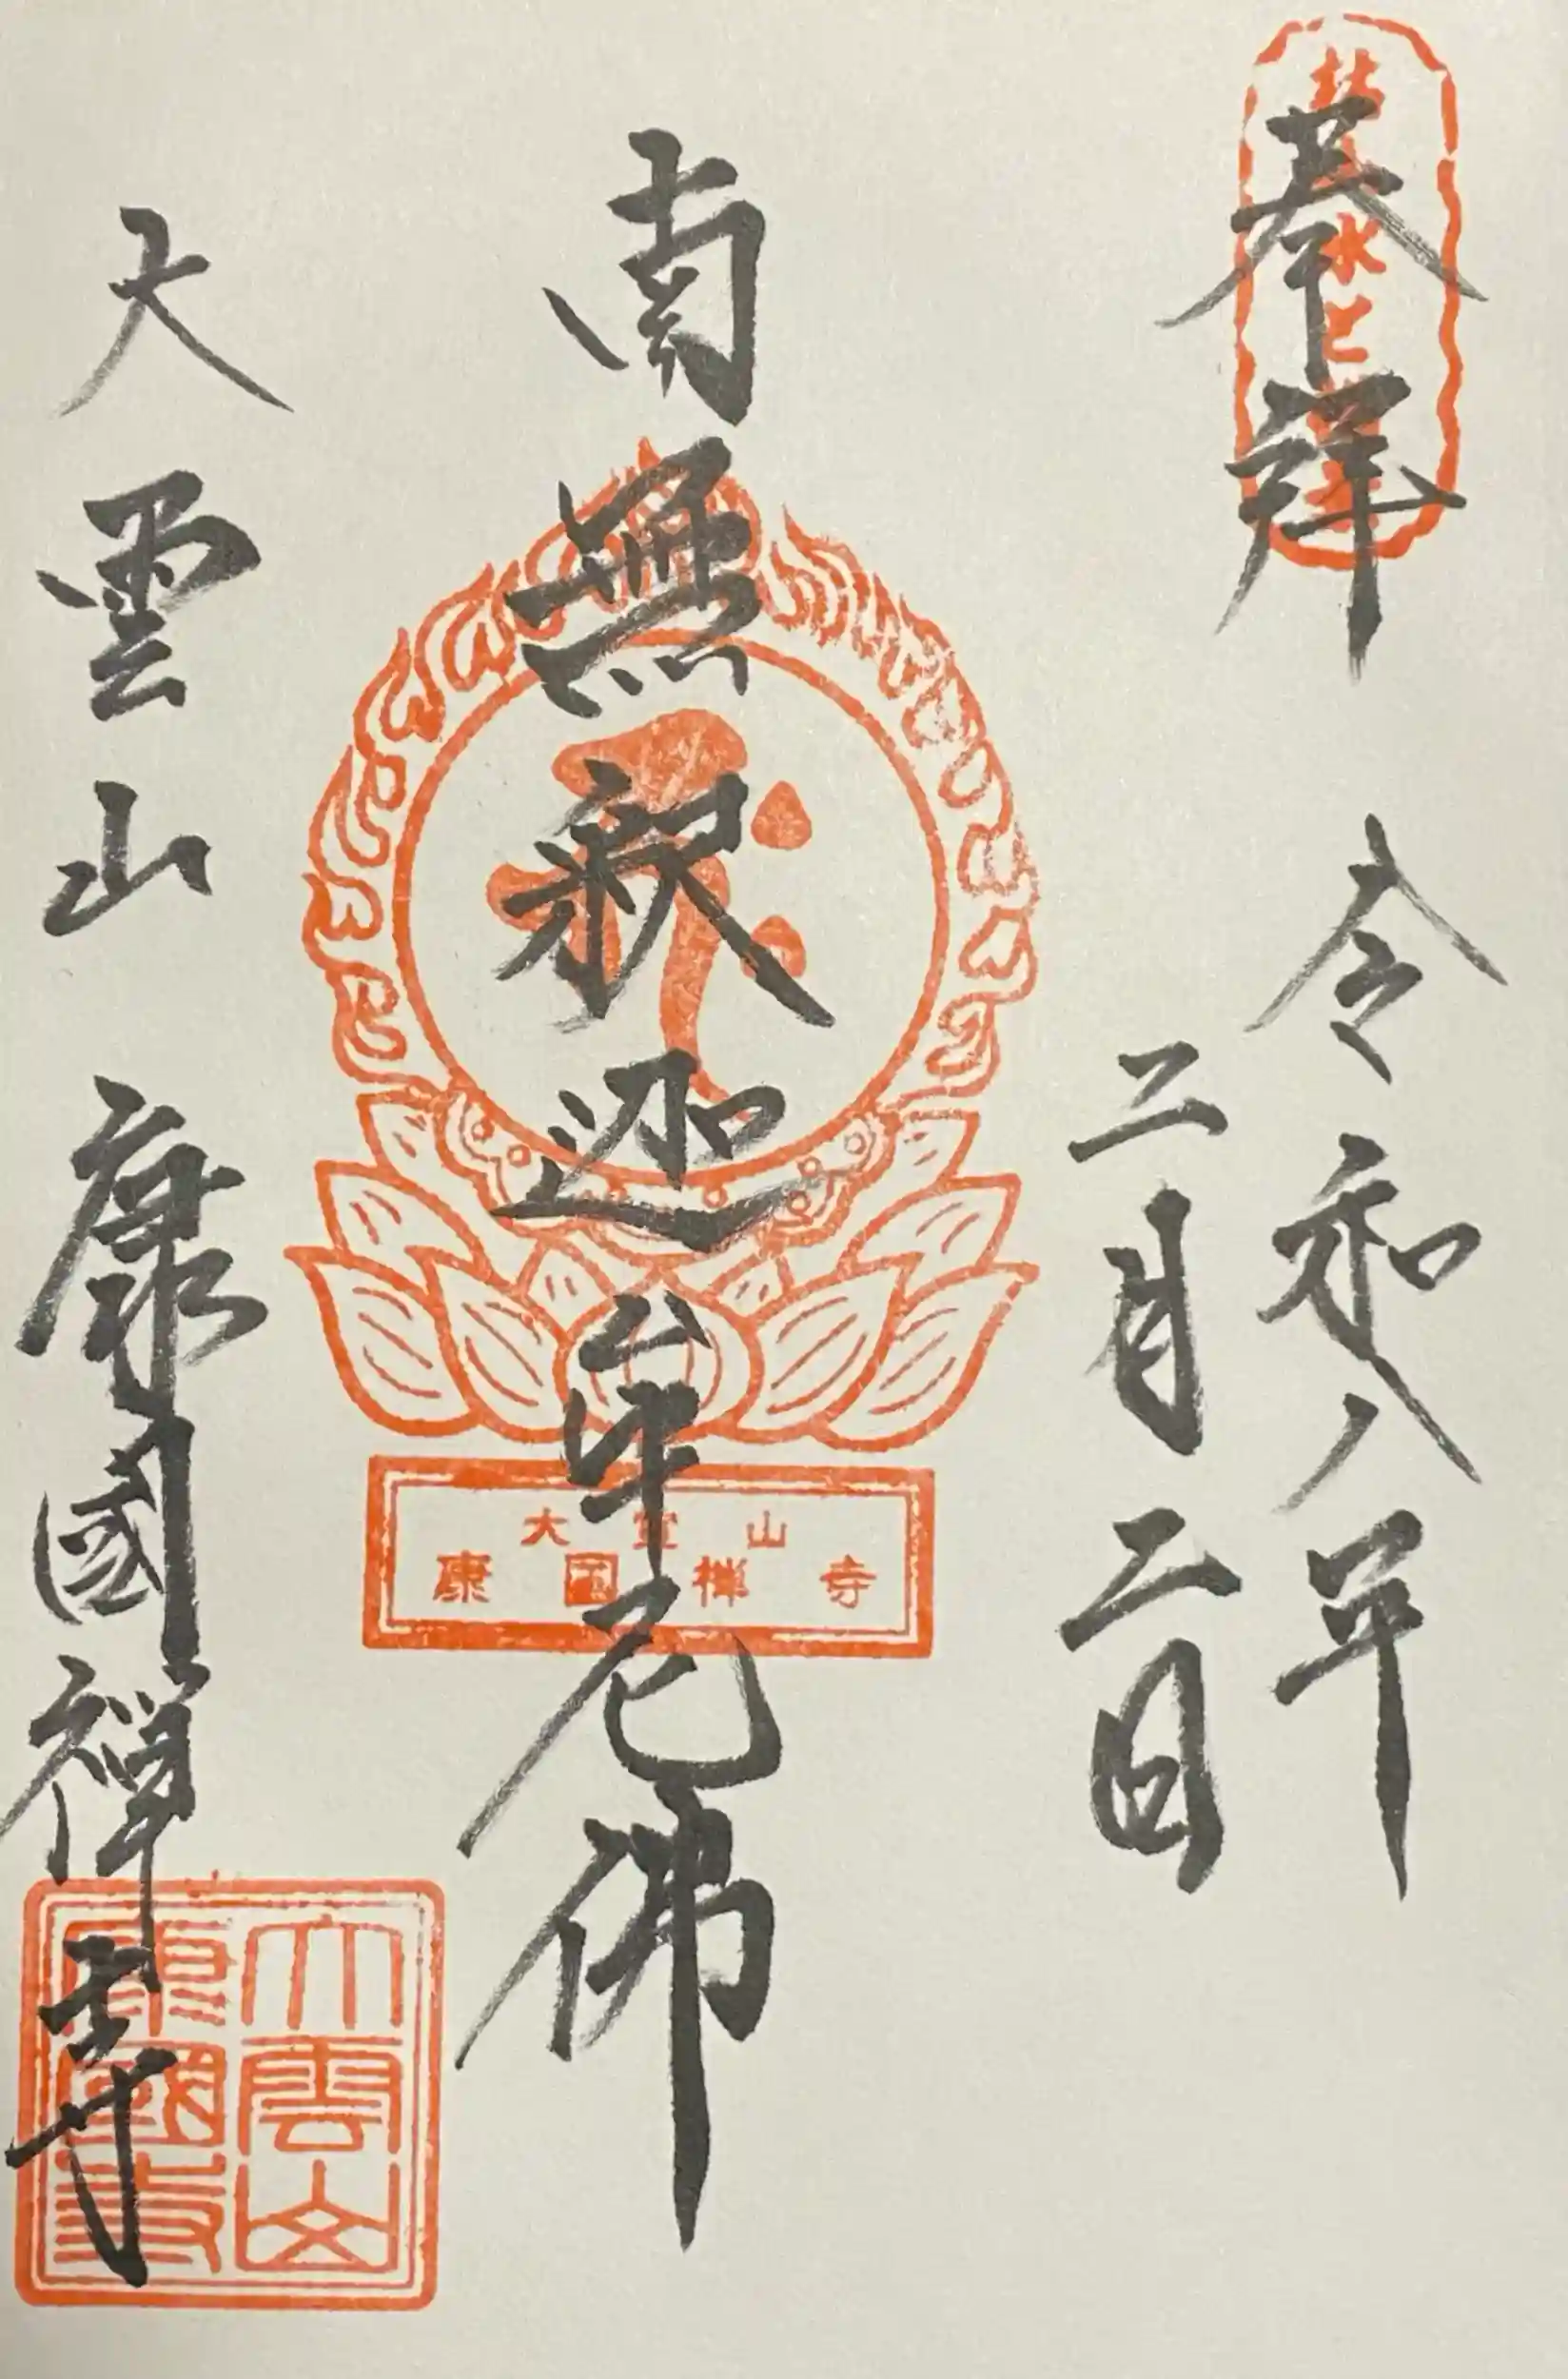 奉拝
令和八年
二月二日
南無釈迦牟尼佛
大雲山
康国禅寺
大雲山 康國禅寺
大雲山
康國寺